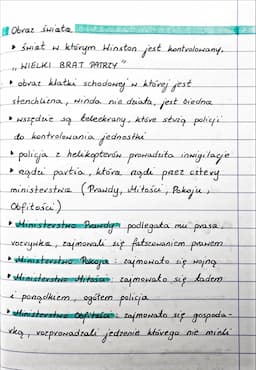 Obraz świata
• świat w którym Winston jest kontrolowany.
„WIELKI BRAT PATRZY"
• obraz klatki schodowej w której jest
stęchlizna, winda nie działa, jest biednie
• wszędzie są teleekrany, które służą policji
do kontrolowania jednostki
• policja z helikopterów prowadziła inwigilację
• rządzi partia, która rządzi przez cztery
ministerstwa (Prawdy, Miłości, Pokoju,
Obfitości)
• Ministerstwo Prawdy podlegała mu prasa,
rozrywka, zajmowali się fałszowaniem prawem
• Ministerstwo Pokoju: zajmowało się wojną
• Ministerstwo Miłości: zajmowało się ładem
i porządkiem, ogółem policja
• Ministerstwo Obfitości: zajmowało się gospoda-
rką, rozprowadzali jedzenie którego nie mieli